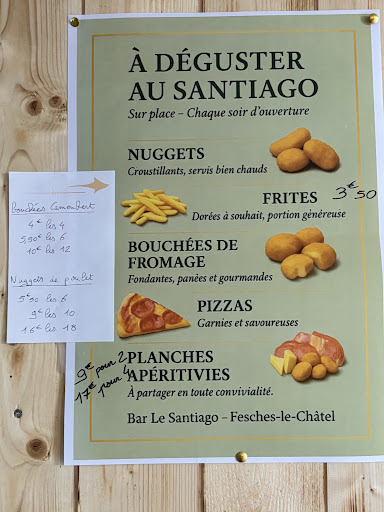 À DÉGUSTER
AU SANTIAGO
Sur place – Chaque soir d'ouverture
NUGGETS
Croustillants, servis bien chauds
FRITES 3€50
Dorées à souhait, portion généreuse
BOUCHÉES DE
FROMAGE
Fondantes, panées et gourmandes
PIZZAS
Garnies et savoureuses
PLANCHES
APÉRITIVIES
À partager en toute convivialité.
Bar Le Santiago – Fesches-le-Châtel
Bouchées Camembert
4€ les 4
5,90€ les 6
10€ les 12
Nuggets de poulet
5€50 les 6
9€ les 10
16€ les 18
9€ pour 2
17€ pour 4